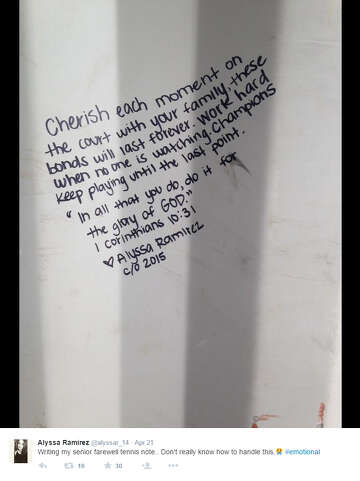 Cherish each moment on
the court with your family, these
bonds will last forever. Work hard
when no one is watching. Champions
keep playing until the last point.
"In all that you do, do it for
the glory of GOD."
1 corinthians 10:31
♡ Alyssa Ramirez
c/o 2015
Alyssa Ramirez @alyssar_14 · Apr 21
Writing my senior farewell tennis note.. Don't really know how to handle this 😢 #emotional
30